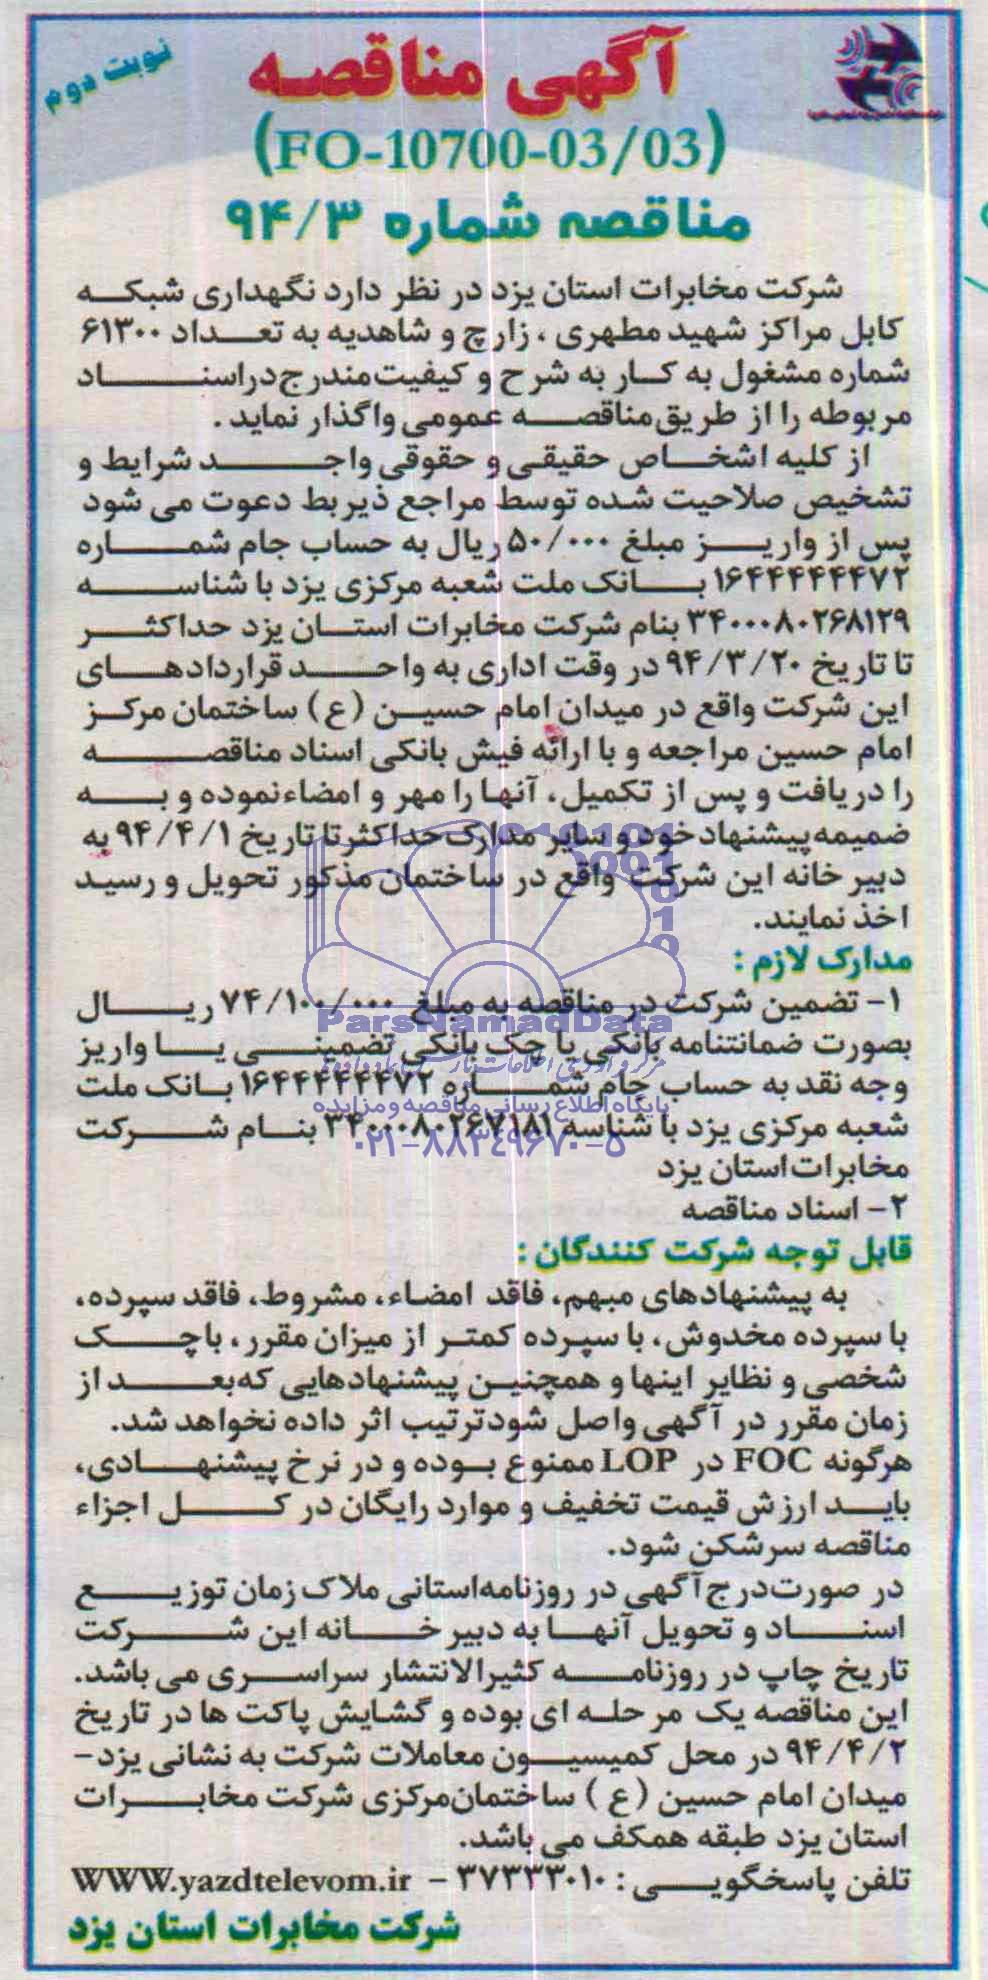 نوبت دوم
آگهی مناقصه
(FO-10700-03/03)
مناقصه شماره ۹۴/۳
شرکت مخابرات استان یزد در نظر دارد نگهداری شبکه
کابل مراکز شهید مطهری ، زارچ و شاهدیه به تعداد ۶۱۳۰۰
شماره مشغول به کار به شرح و کیفیت مندرج در اسناد
مربوطه را از طریق مناقصه عمومی واگذار نماید .
از کلیه اشخاص حقیقی و حقوقی واجد شرایط و
تشخیص صلاحیت شده توسط مراجع ذیربط دعوت می شود
پس از واریز مبلغ ۵۰/۰۰۰ ریال به حساب جام شماره
۱۶۴۴۴۴۴۴۷۲ بانک ملت شعبه مرکزی یزد با شناسه
۳۴۰۰۰۸۰۲۶۸۱۲۹ بنام شرکت مخابرات استان یزد حداکثر
تا تاریخ ۹۴/۳/۲۰ در وقت اداری به واحد قراردادهای
این شرکت واقع در میدان امام حسین (ع) ساختمان مرکز
امام حسین مراجعه و با ارائه فیش بانکی اسناد مناقصه
را دریافت و پس از تکمیل، آنها را مهر و امضاء نموده و به
ضمیمه پیشنهاد خود و سایر مدارک حداکثر تا تاریخ ۹۴/۴/۱ به
دبیر خانه این شرکت واقع در ساختمان مذکور تحویل و رسید
اخذ نمایند.
مدارک لازم :
۱- تضمین شرکت در مناقصه به مبلغ ۷۴/۱۰۰/۰۰۰ ریال
بصورت ضمانتنامه بانکی یا چک بانکی تضمینی یا واریز
وجه نقد به حساب جام شماره ۱۶۴۴۴۴۴۴۷۲ بانک ملت
شعبه مرکزی یزد با شناسه ۳۴۰۰۰۸۰۲۶۷۱۸۱ بنام شرکت
مخابرات استان یزد
۲- اسناد مناقصه
قابل توجه شرکت کنندگان :
به پیشنهادهای مبهم، فاقد امضاء، مشروط، فاقد سپرده،
با سپرده مخدوش، با سپرده کمتر از میزان مقرر، با چک
شخصی و نظایر اینها و همچنین پیشنهادهایی که بعد از
زمان مقرر در آگهی واصل شود ترتیب اثر داده نخواهد شد.
هرگونه FOC در LOP ممنوع بوده و در نرخ پیشنهادی،
باید ارزش قیمت تخفیف و موارد رایگان در کل اجزاء
مناقصه سرشکن شود.
در صورت درج آگهی در روزنامه استانی ملاک زمان توزیع
اسناد و تحویل آنها به دبیر خانه این شرکت
تاریخ چاپ در روزنامه کثیرالانتشار سراسری می باشد.
این مناقصه یک مرحله ای بوده و گشایش پاکت ها در تاریخ
۹۴/۴/۲ در محل کمیسیون معاملات شرکت به نشانی یزد-
میدان امام حسین (ع) ساختمان مرکزی شرکت مخابرات
استان یزد طبقه همکف می باشد.
تلفن پاسخگویی : ۳۷۳۳۳۰۱۰ - WWW.yazdtelevom.ir
شرکت مخابرات استان یزد
ParsNamadData
پایگاه اطلاع رسانی مناقصه و مزایده
۰۲۱-۸۸۳۴۹۶۷۰-۵